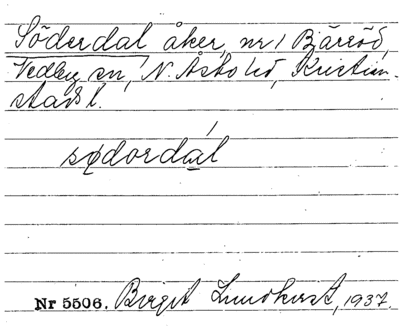 Söderdal åker, nr 1 Bjäröd,
Vedby sn, N. Åsbo hd, Kristian-
stads l.
sødordál
Nr 5506. Birgit Lundkvist, 1937.